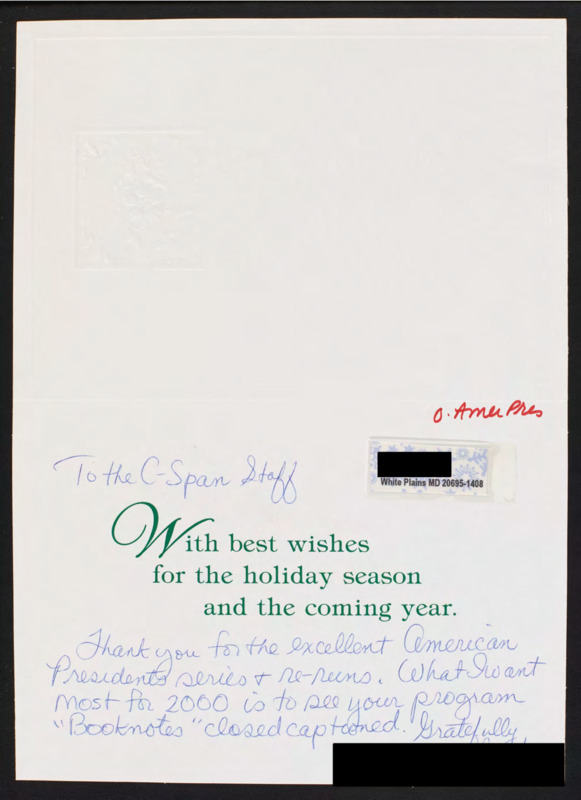 O. Amer Pres
To the C-Span Staff
White Plains MD 20695-1408
With best wishes
for the holiday season
and the coming year.
Thank you for the excellent American
Presidents series & re-runs. What I want
most for 2000 is to see your program
"Booknotes" closed captioned. Gratefully,